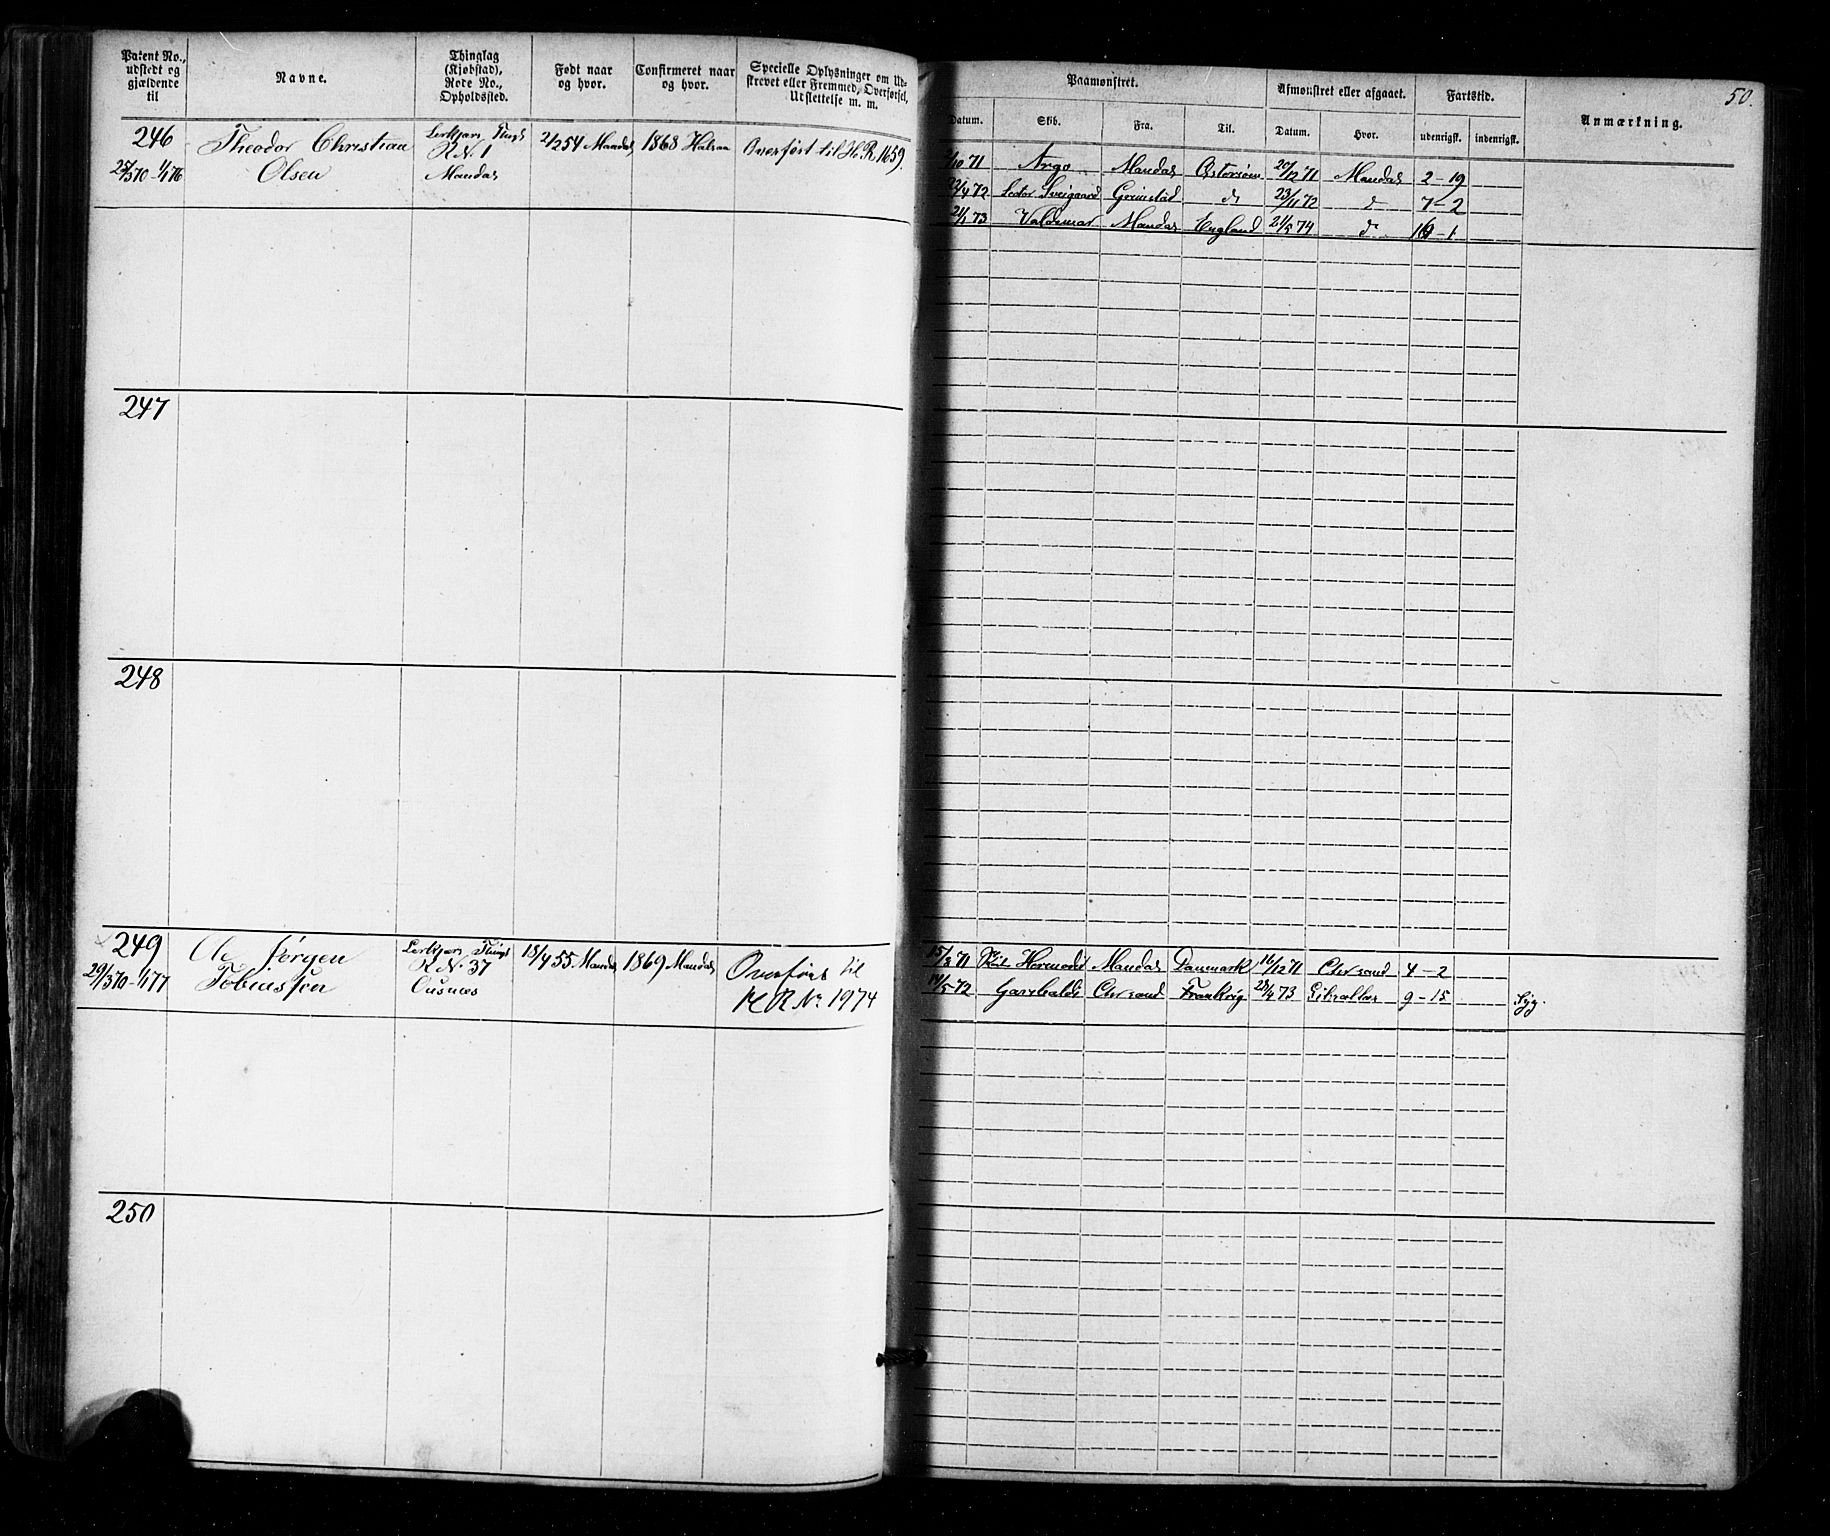 50.
Patent No., udstedt og gjældende til
Navne.
Thinglag (Kjøbstad), Rode No., Opholdssted.
Født naar og hvor.
Confirmeret naar og hvor.
Specielle Oplysninger om Udskrevet eller Fremmed, Overførsel, Udslettelse m. m.
Paamønstret.
Afmønstret eller afgaaet.
Fartstid.
Anmærkning.
Datum.
Skib.
Fra.
Til.
Datum.
Hvor.
udenrigsk.
indenrigsk.
246
Theodor Christian
Olsen
R.N. 1
Mandal
2/2 54 Mandal
1868 Halsaa
Overført til H.R. 1659.
10 71 Argo Mandal Østersøen 20/12 71 Mandal 2 - 19
22/4 72 Grimstad do 23/11 72 do 7 - 2
21/5 73 Valdemar Mandal England 21/5 74 do
247
248
249
29/3 70 - 1/1 77
Ole Jørgen
Tobiassen
R.N. 37
18/4 55 Mandal
1869 Mandal
Overført til
H R No 1974
15/8 71 Hermodt Mandal Danmark 16/12 71 Chrsand 4 - 2
14/5 72 Garibaldi Chrsand 28/2 73 Gibraltar 9 - 15 Syg.
250